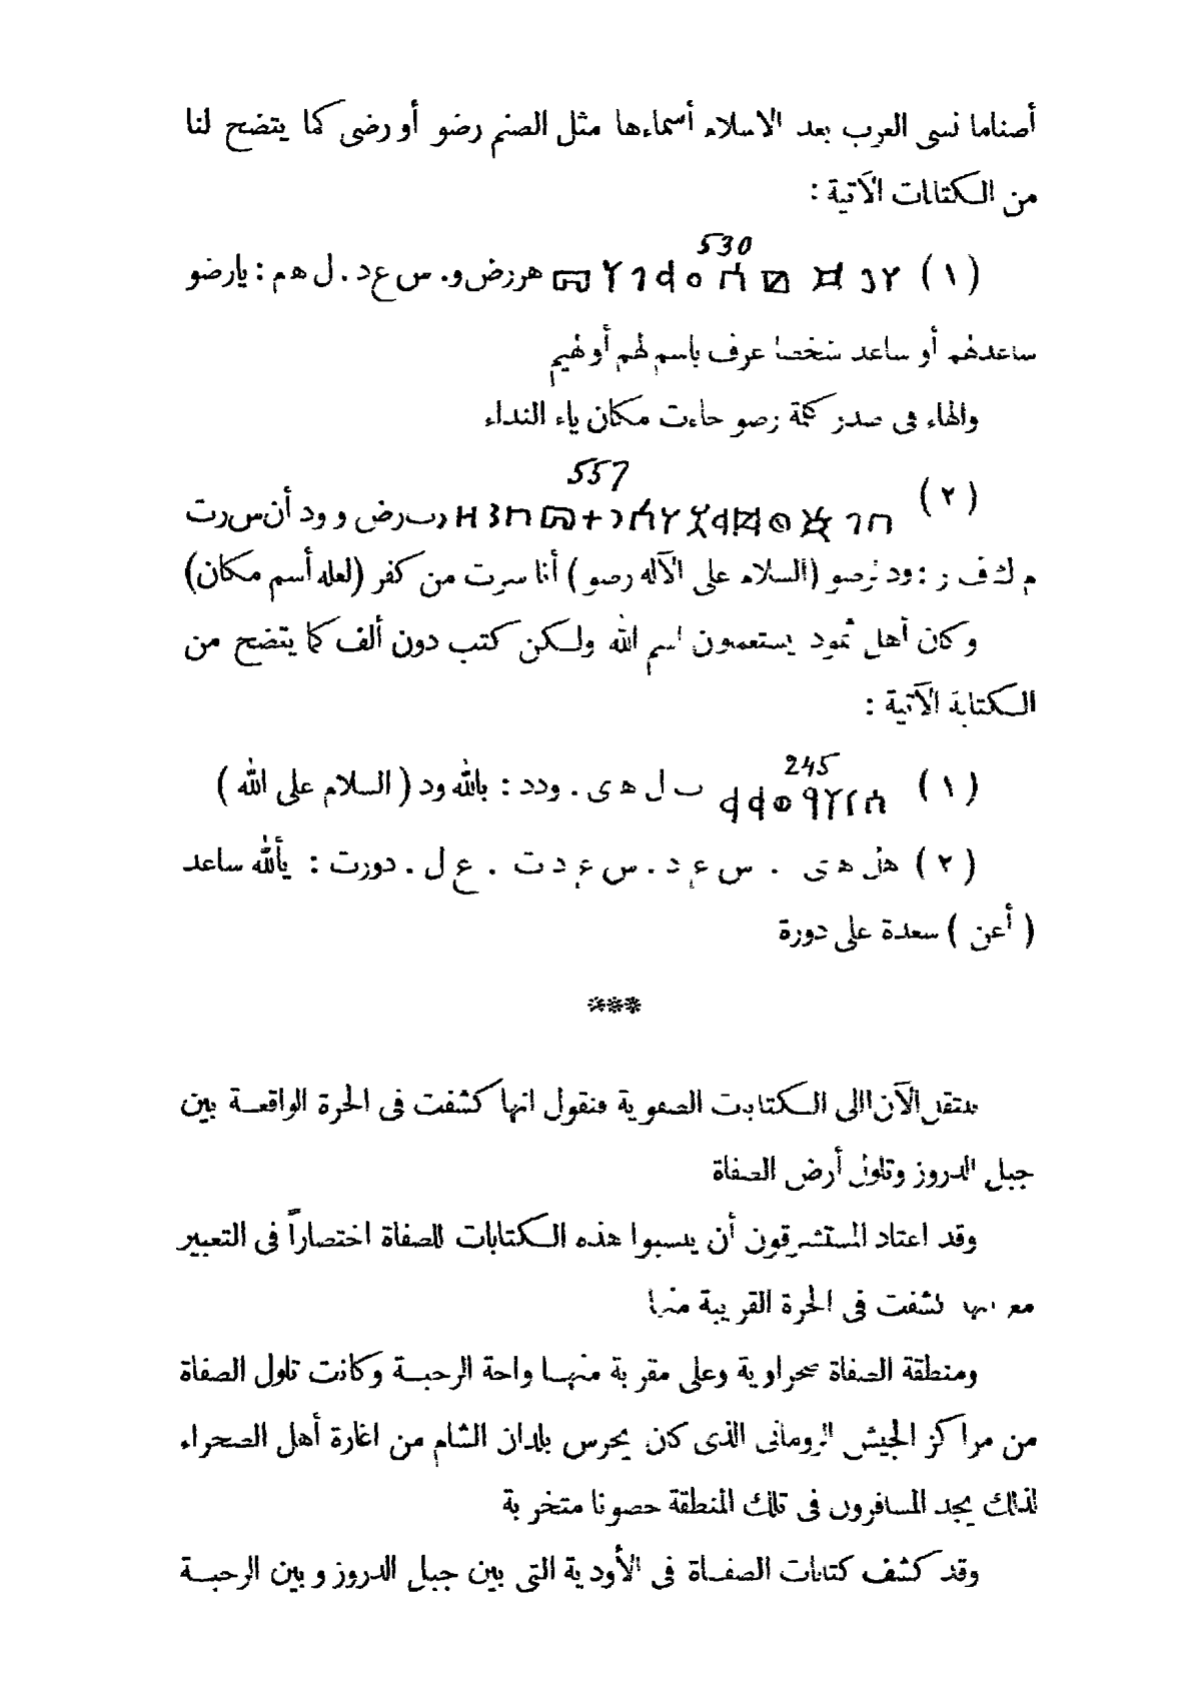 أصناما نسى العرب بعد الاسلام أسماءها مثل الصنم رضو أو رضى كما يتضح لنا
من الكتابات الآتية :
530
( ١ ) هررض و. س ع د . ل هم : يارضو
ساعدهم أو ساعد شخصا عرف باسم لهم أو لهيم
والهاء فى صدر كلمة رضو جاءت مكان ياء النداء
557
( ٢ ) رض و ود أن س رت
م ك ف ر : ود رضو ( السلام على الآله رضو ) أنا سرت من كفر ( لعله أسم مكان )
وكان أهل ثمود يستعملون اسم الله ولكن كتب دون ألف كما يتضح من
الكتابة الآتية :
245
( ١ ) ب ل ه ى . ودد : بالله ود ( السلام على الله )
( ٢ ) ه ى . س ع د . س ع د ت . ع ل . دورت : يألله ساعد
( أعن ) سعدة على دورة
***
ننتقل الآن الى الكتابات الصفوية فنقول انها كشفت فى الحرة الواقعة بين
جبل الدروز وتلول أرض الصفاة
وقد اعتاد المستشرقون أن ينسبوا هذه الكتابات للصفاة اختصاراً فى التعبير
مع انها كشفت فى الحرة القريبة منها
ومنطقة الصفاة صحراوية وعلى مقربة منها واحة الرحبة وكانت تلول الصفاة
من مراكز الجيش الرومانى الذى كان يحرس بلدان الشام من اغارة أهل الصحراء
لذلك يجد المسافرون فى تلك المنطقة حصونا متخربة
وقد كشف كتابات الصفاة فى الأودية التى بين جبل الدروز وبين الرحبة